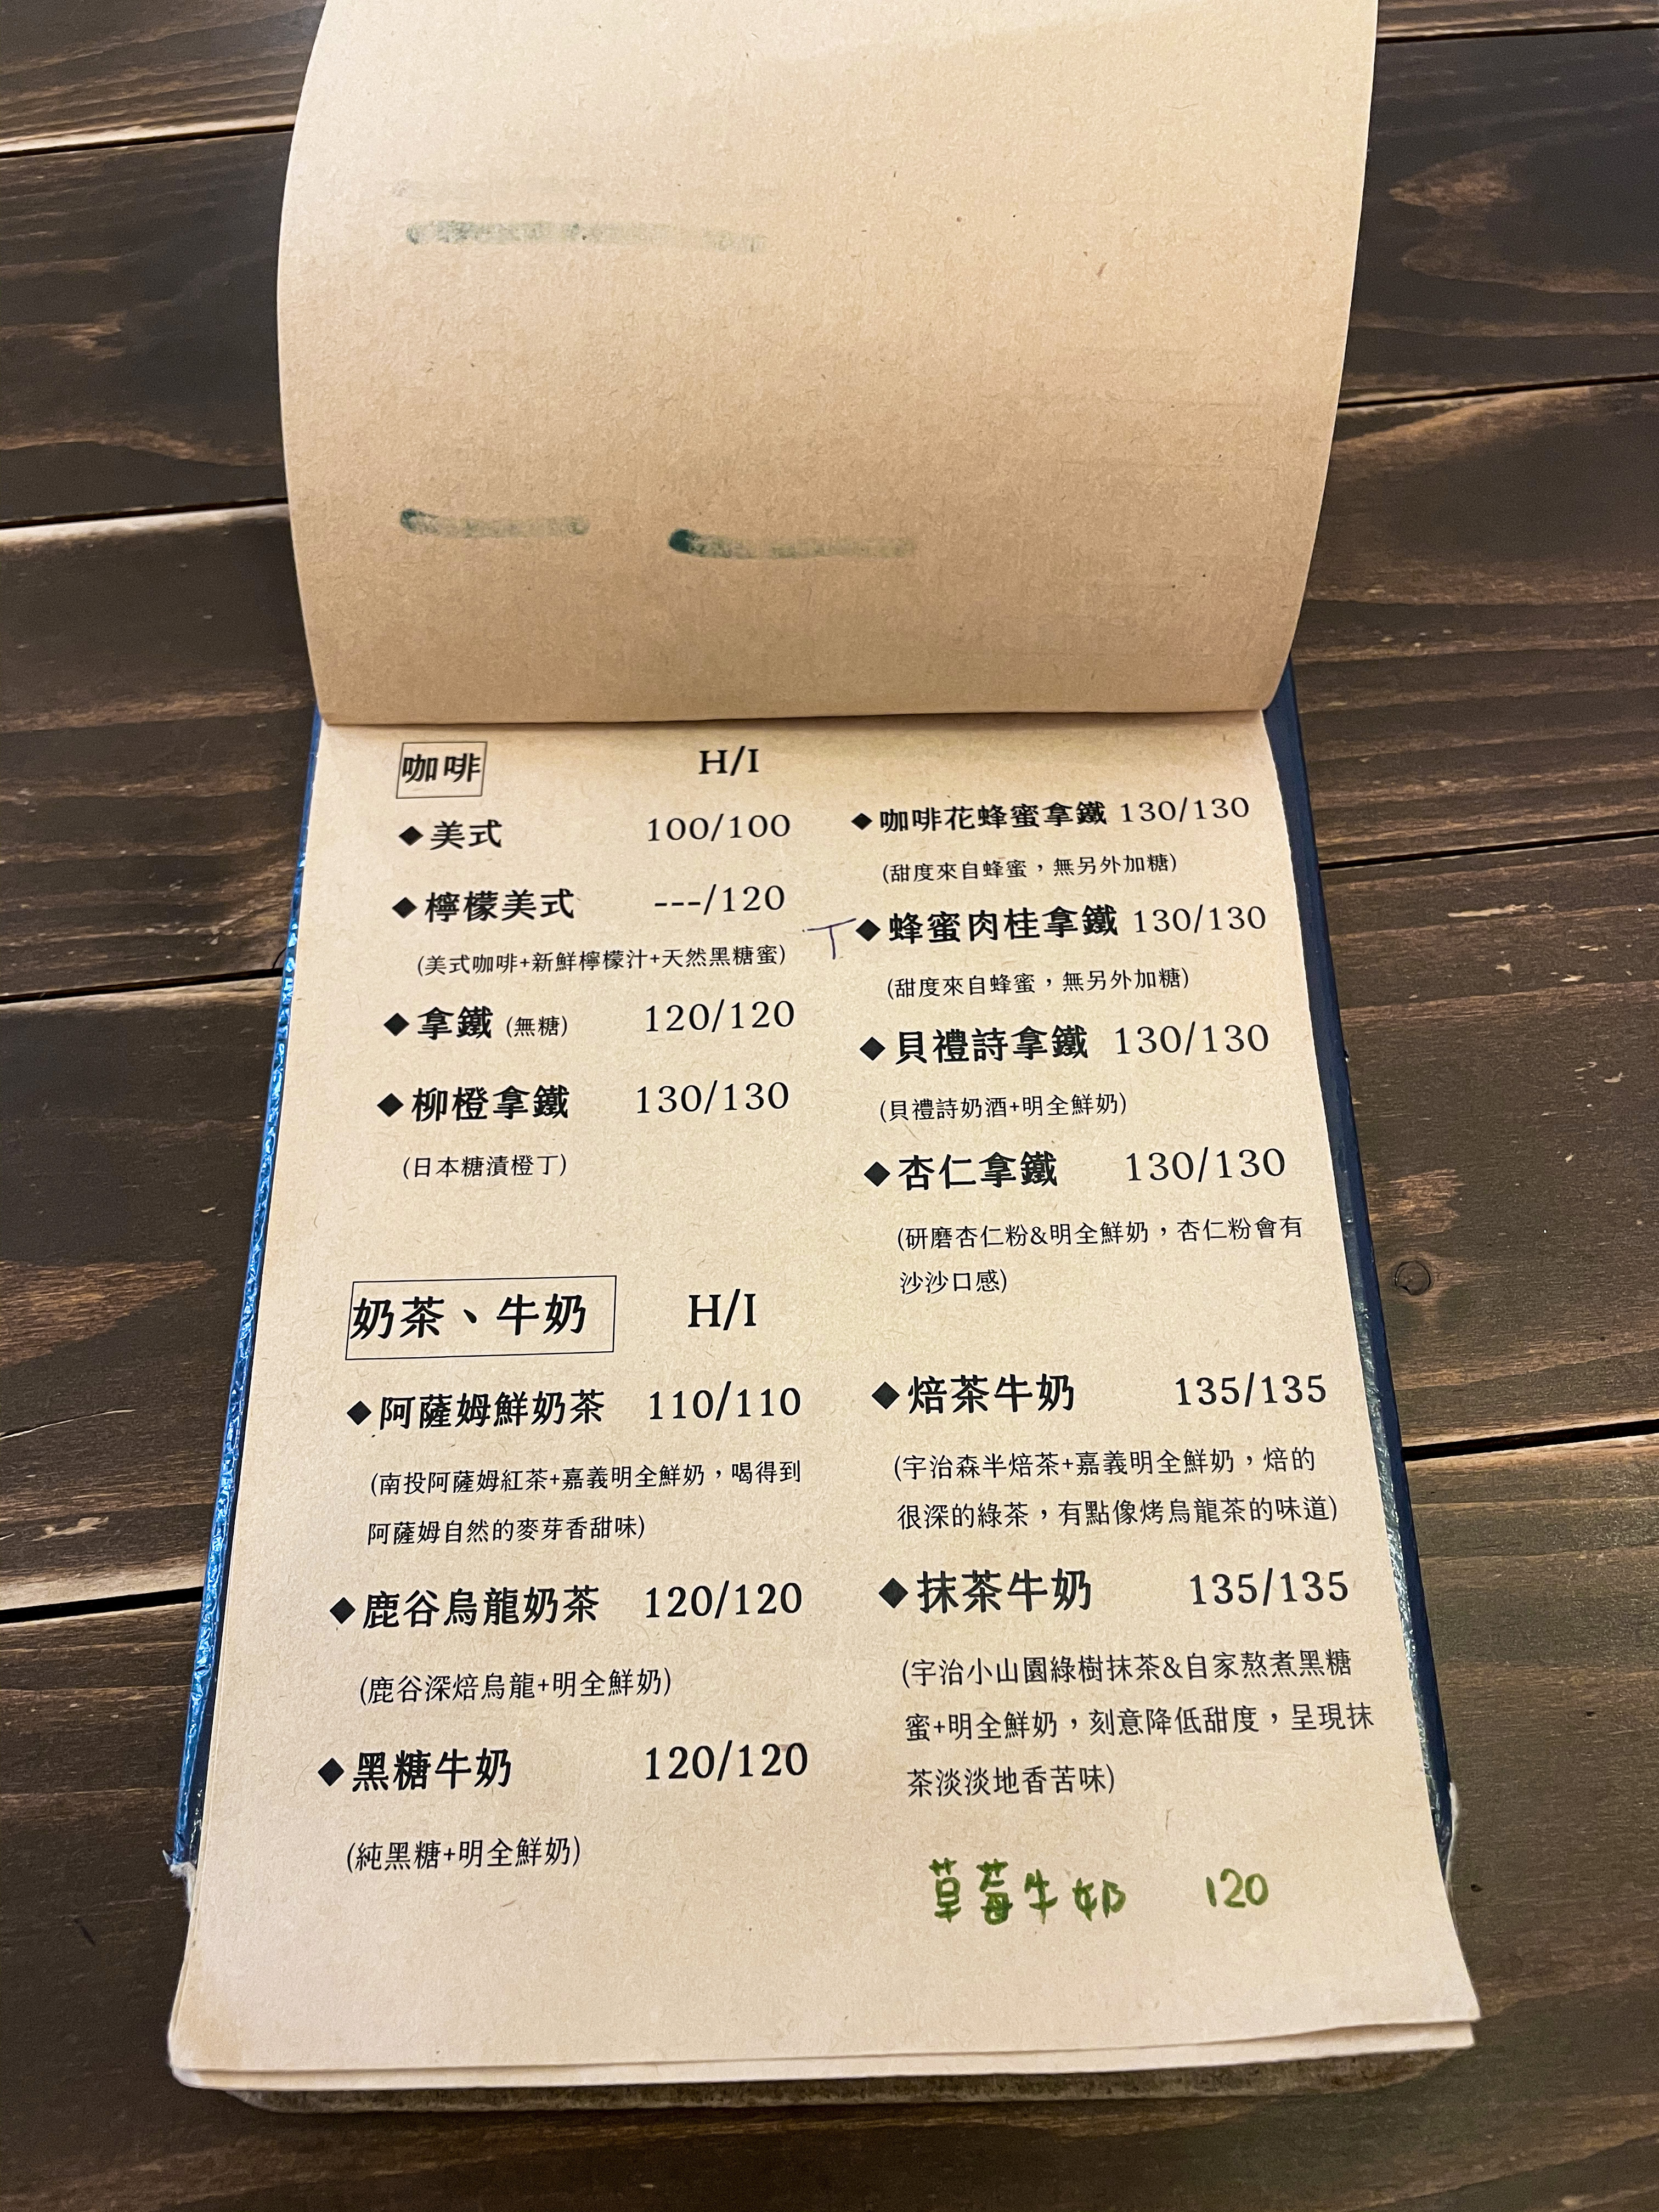 咖啡 H/I
◆美式 100/100
◆檸檬美式 ---/120
(美式咖啡+新鮮檸檬汁+天然黑糖蜜)
◆拿鐵 (無糖) 120/120
◆柳橙拿鐵 130/130
(日本糖漬橙丁)
◆咖啡花蜂蜜拿鐵 130/130
(甜度來自蜂蜜，無另外加糖)
◆蜂蜜肉桂拿鐵 130/130
(甜度來自蜂蜜，無另外加糖)
◆貝禮詩拿鐵 130/130
(貝禮詩奶酒+明全鮮奶)
◆杏仁拿鐵 130/130
(研磨杏仁粉&明全鮮奶，杏仁粉會有
沙沙口感)
奶茶、牛奶 H/I
◆阿薩姆鮮奶茶 110/110
(南投阿薩姆紅茶+嘉義明全鮮奶，喝得到
阿薩姆自然的麥芽香甜味)
◆鹿谷烏龍奶茶 120/120
(鹿谷深焙烏龍+明全鮮奶)
◆黑糖牛奶 120/120
(純黑糖+明全鮮奶)
◆焙茶牛奶 135/135
(宇治森半焙茶+嘉義明全鮮奶，焙的
很深的綠茶，有點像烤烏龍茶的味道)
◆抹茶牛奶 135/135
(宇治小山園綠樹抹茶&自家熬煮黑糖
蜜+明全鮮奶，刻意降低甜度，呈現抹
茶淡淡地香苦味)
草莓牛奶 120